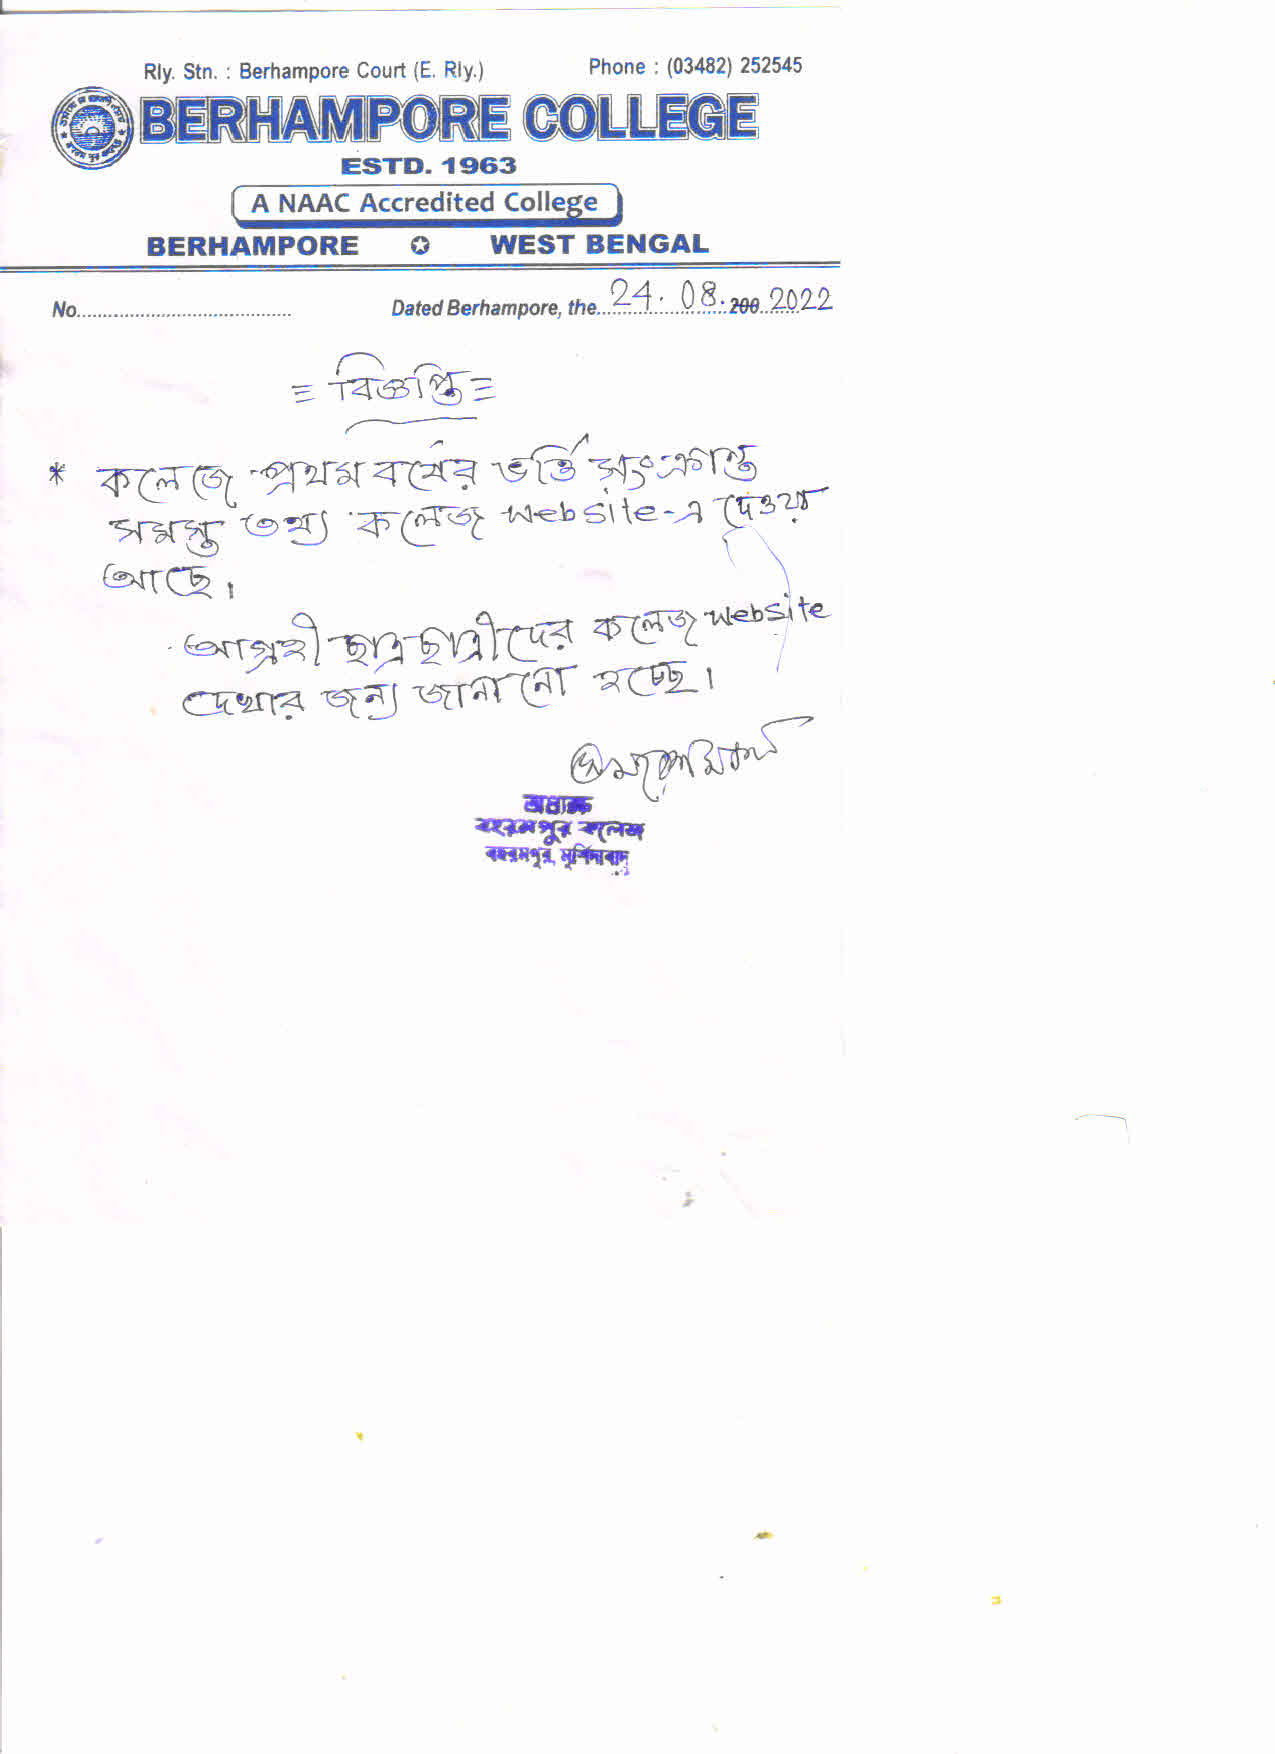 Rly. Stn. : Berhampore Court (E. Rly.) Phone : (03482) 252545
BERHAMPORE COLLEGE
ESTD. 1963
A NAAC Accredited College
BERHAMPORE ✪ WEST BENGAL
No......................................... Dated Berhampore, the 24.08.200 2022
= বিজ্ঞপ্তি =
* কলেজে প্রথম বর্ষের ভর্তি সংক্রান্ত
সমস্ত তথ্য কলেজ website-এ দেওয়া
আছে।
আগ্রহী ছাত্রছাত্রীদের কলেজ website
দেখার জন্য জানানো হচ্ছে।
অধ্যক্ষ
বহরমপুর কলেজ
বহরমপুর, মুর্শিদাবাদ